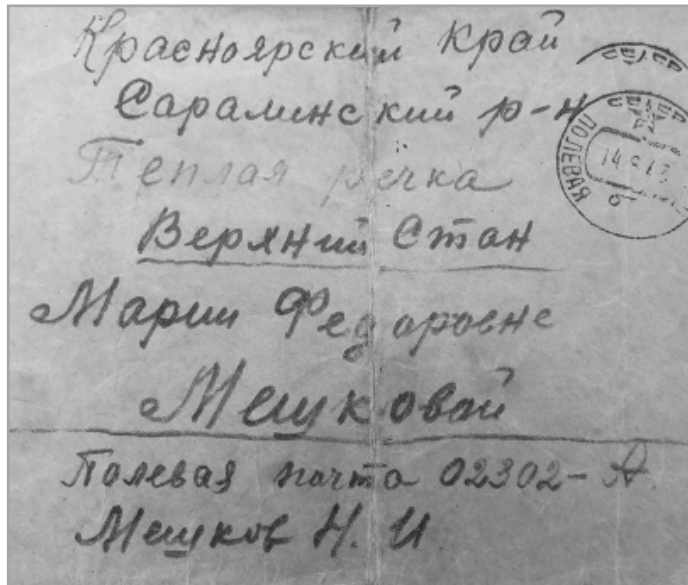 Красноярский край
Саралинский р-н
Теплая речка
Верхний Стан
Марии Федоровне
Мешковой
Полевая почта 02302-А.
Мешков Н. И
ПОЛЕВАЯ